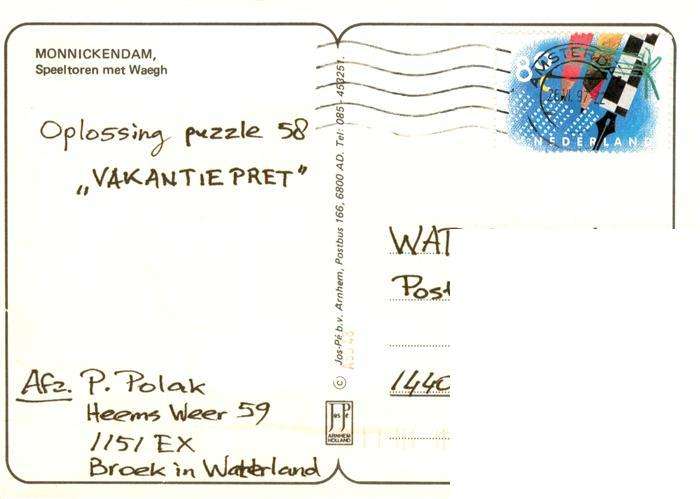 MONNICKENDAM,
Speeltoren met Waegh
Oplossing puzzle 58
„VAKANTIEPRET”
Afz. P. Polak
Heems Weer 59
1151 EX
Broek in Waterland
© Jos-Pé b.v. Arnhem, Postbus 166, 6800 AD. Tel: 085 - 453251.
Jos Pé
ARNHEM
HOLLAND
80
AMSTERD
NEDERLAND
WAT
Post
1440